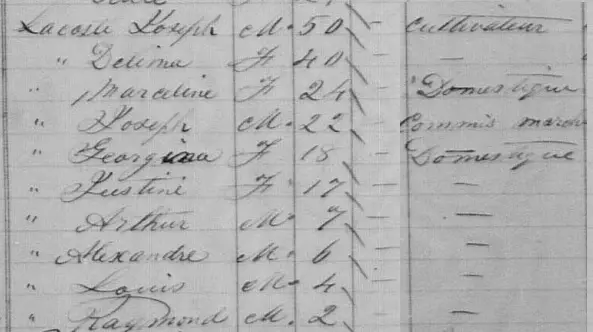 Lacoste Joseph M. 50 — Cultivateur
" Delima F. 40 — —
" Marceline F. 24 — Domestique
" Joseph M. 22 — Commis march
" Georgina F. 18 — Domestique
" Justine F. 17 — —
" Arthur M. 7 — —
" Alexandre M. 6 — —
" Louis M. 4 — —
" Raymond M. 2 — —